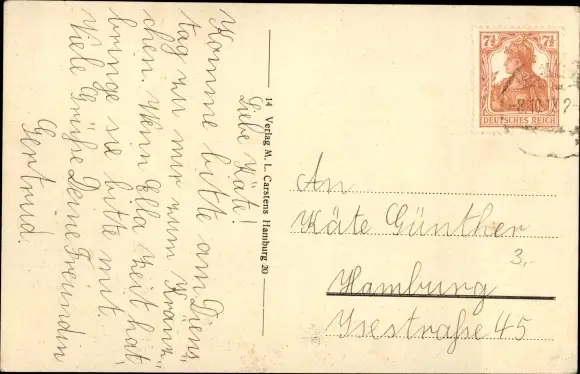 Liebe Käte!
Komme bitte am Diens„
tag zu mir zum Kränz„
chen. Wenn Ella Zeit hat,
bringe sie bitte mit.
Viele Grüße Deine Freundin
Gertrud.
14 Verlag M. L. Carstens Hamburg 20
7½ 7½
DEUTSCHES REICH
An
Käte Günther
3,-
Hamburg
Isestraße 45